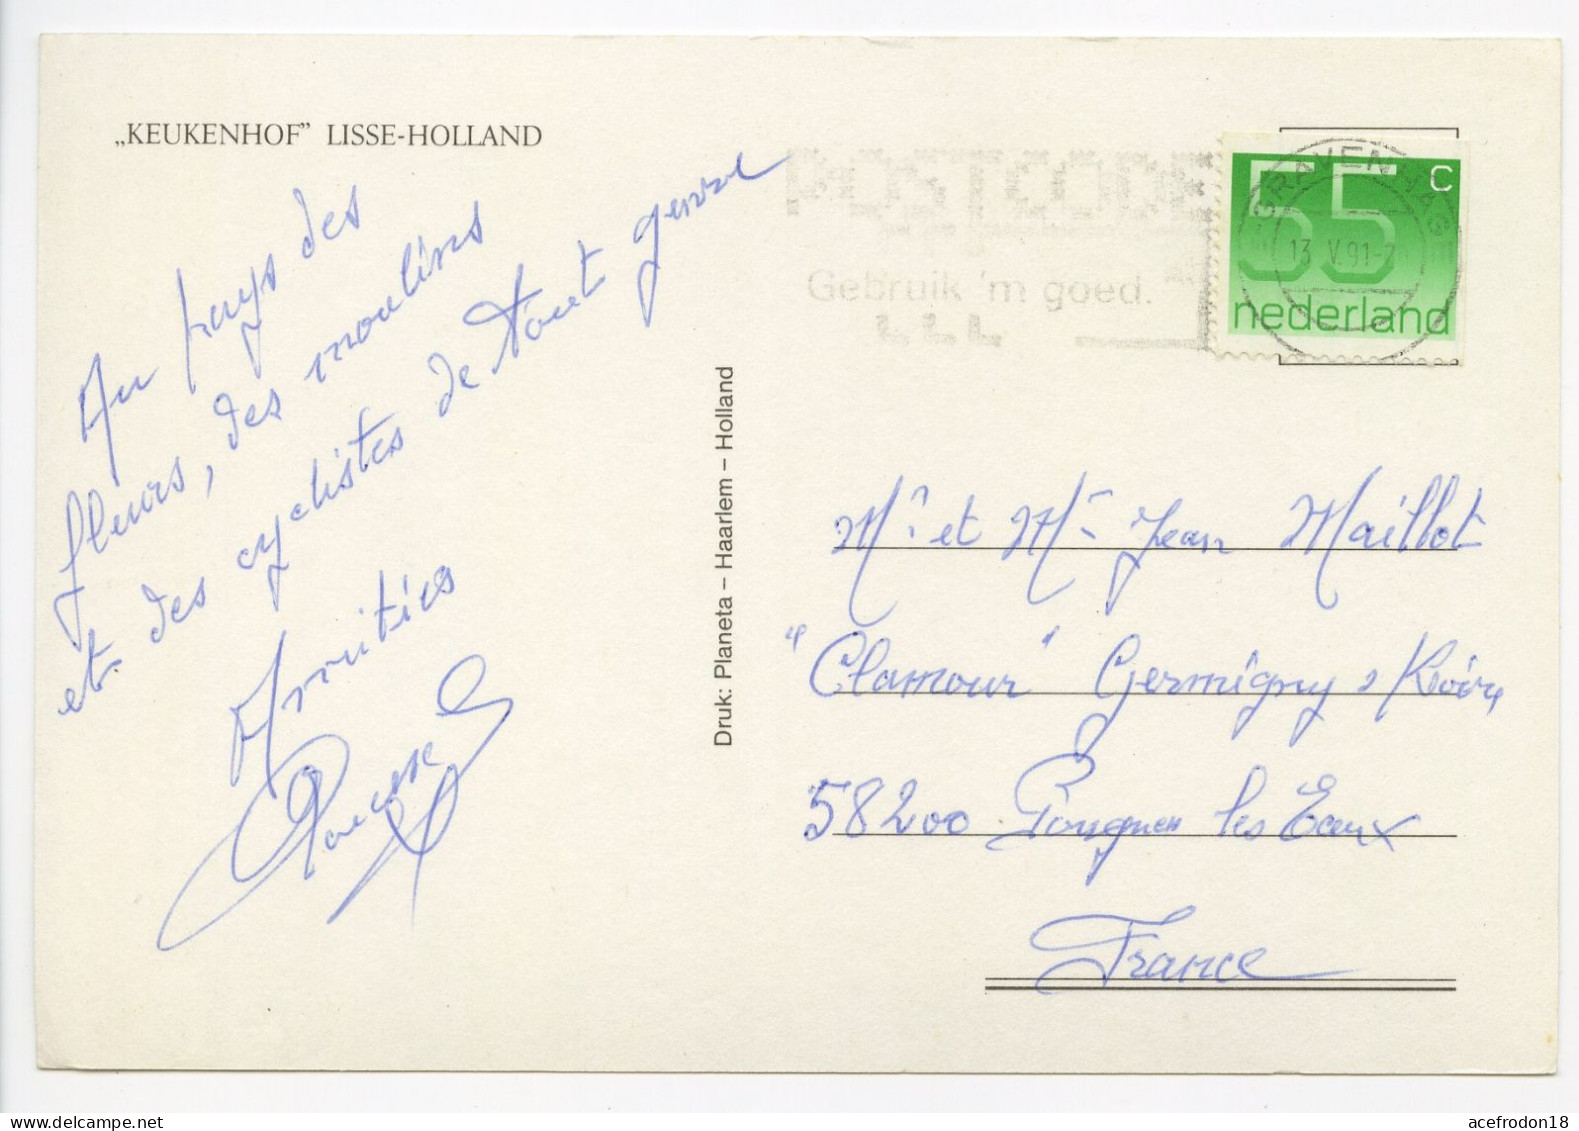 „KEUKENHOF” LISSE-HOLLAND
Au pays des
fleurs, des moulins
et des cyclistes de tout genre
Amitiés
Druk: Planeta – Haarlem – Holland
POSTCODE
Gebruik 'm goed.
'S GRAVENHAGE
13 V.91-7
55 c
nederland
Mr et Me Jean Maillot
"Clamour" Germigny s Loire
58200 Pougues les Eaux
France
acefrodon18